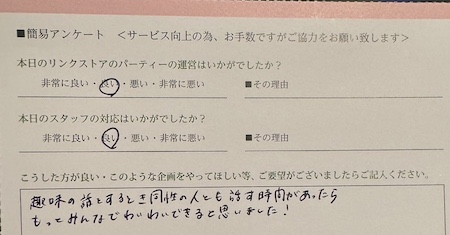 ■簡易アンケート　＜サービス向上の為、お手数ですがご協力をお願い致します＞
本日のリンクストアのパーティーの運営はいかがでしたか？
非常に良い・良い・悪い・非常に悪い　■その理由
本日のスタッフの対応はいかがでしたか？
非常に良い・良い・悪い・非常に悪い　■その理由
こうした方が良い・このような企画をやってほしい等、ご要望がございましたらご記入ください。
趣味の話をするとき同性の人とも話す時間があったら
もっとみんなでわいわいできると思いました！